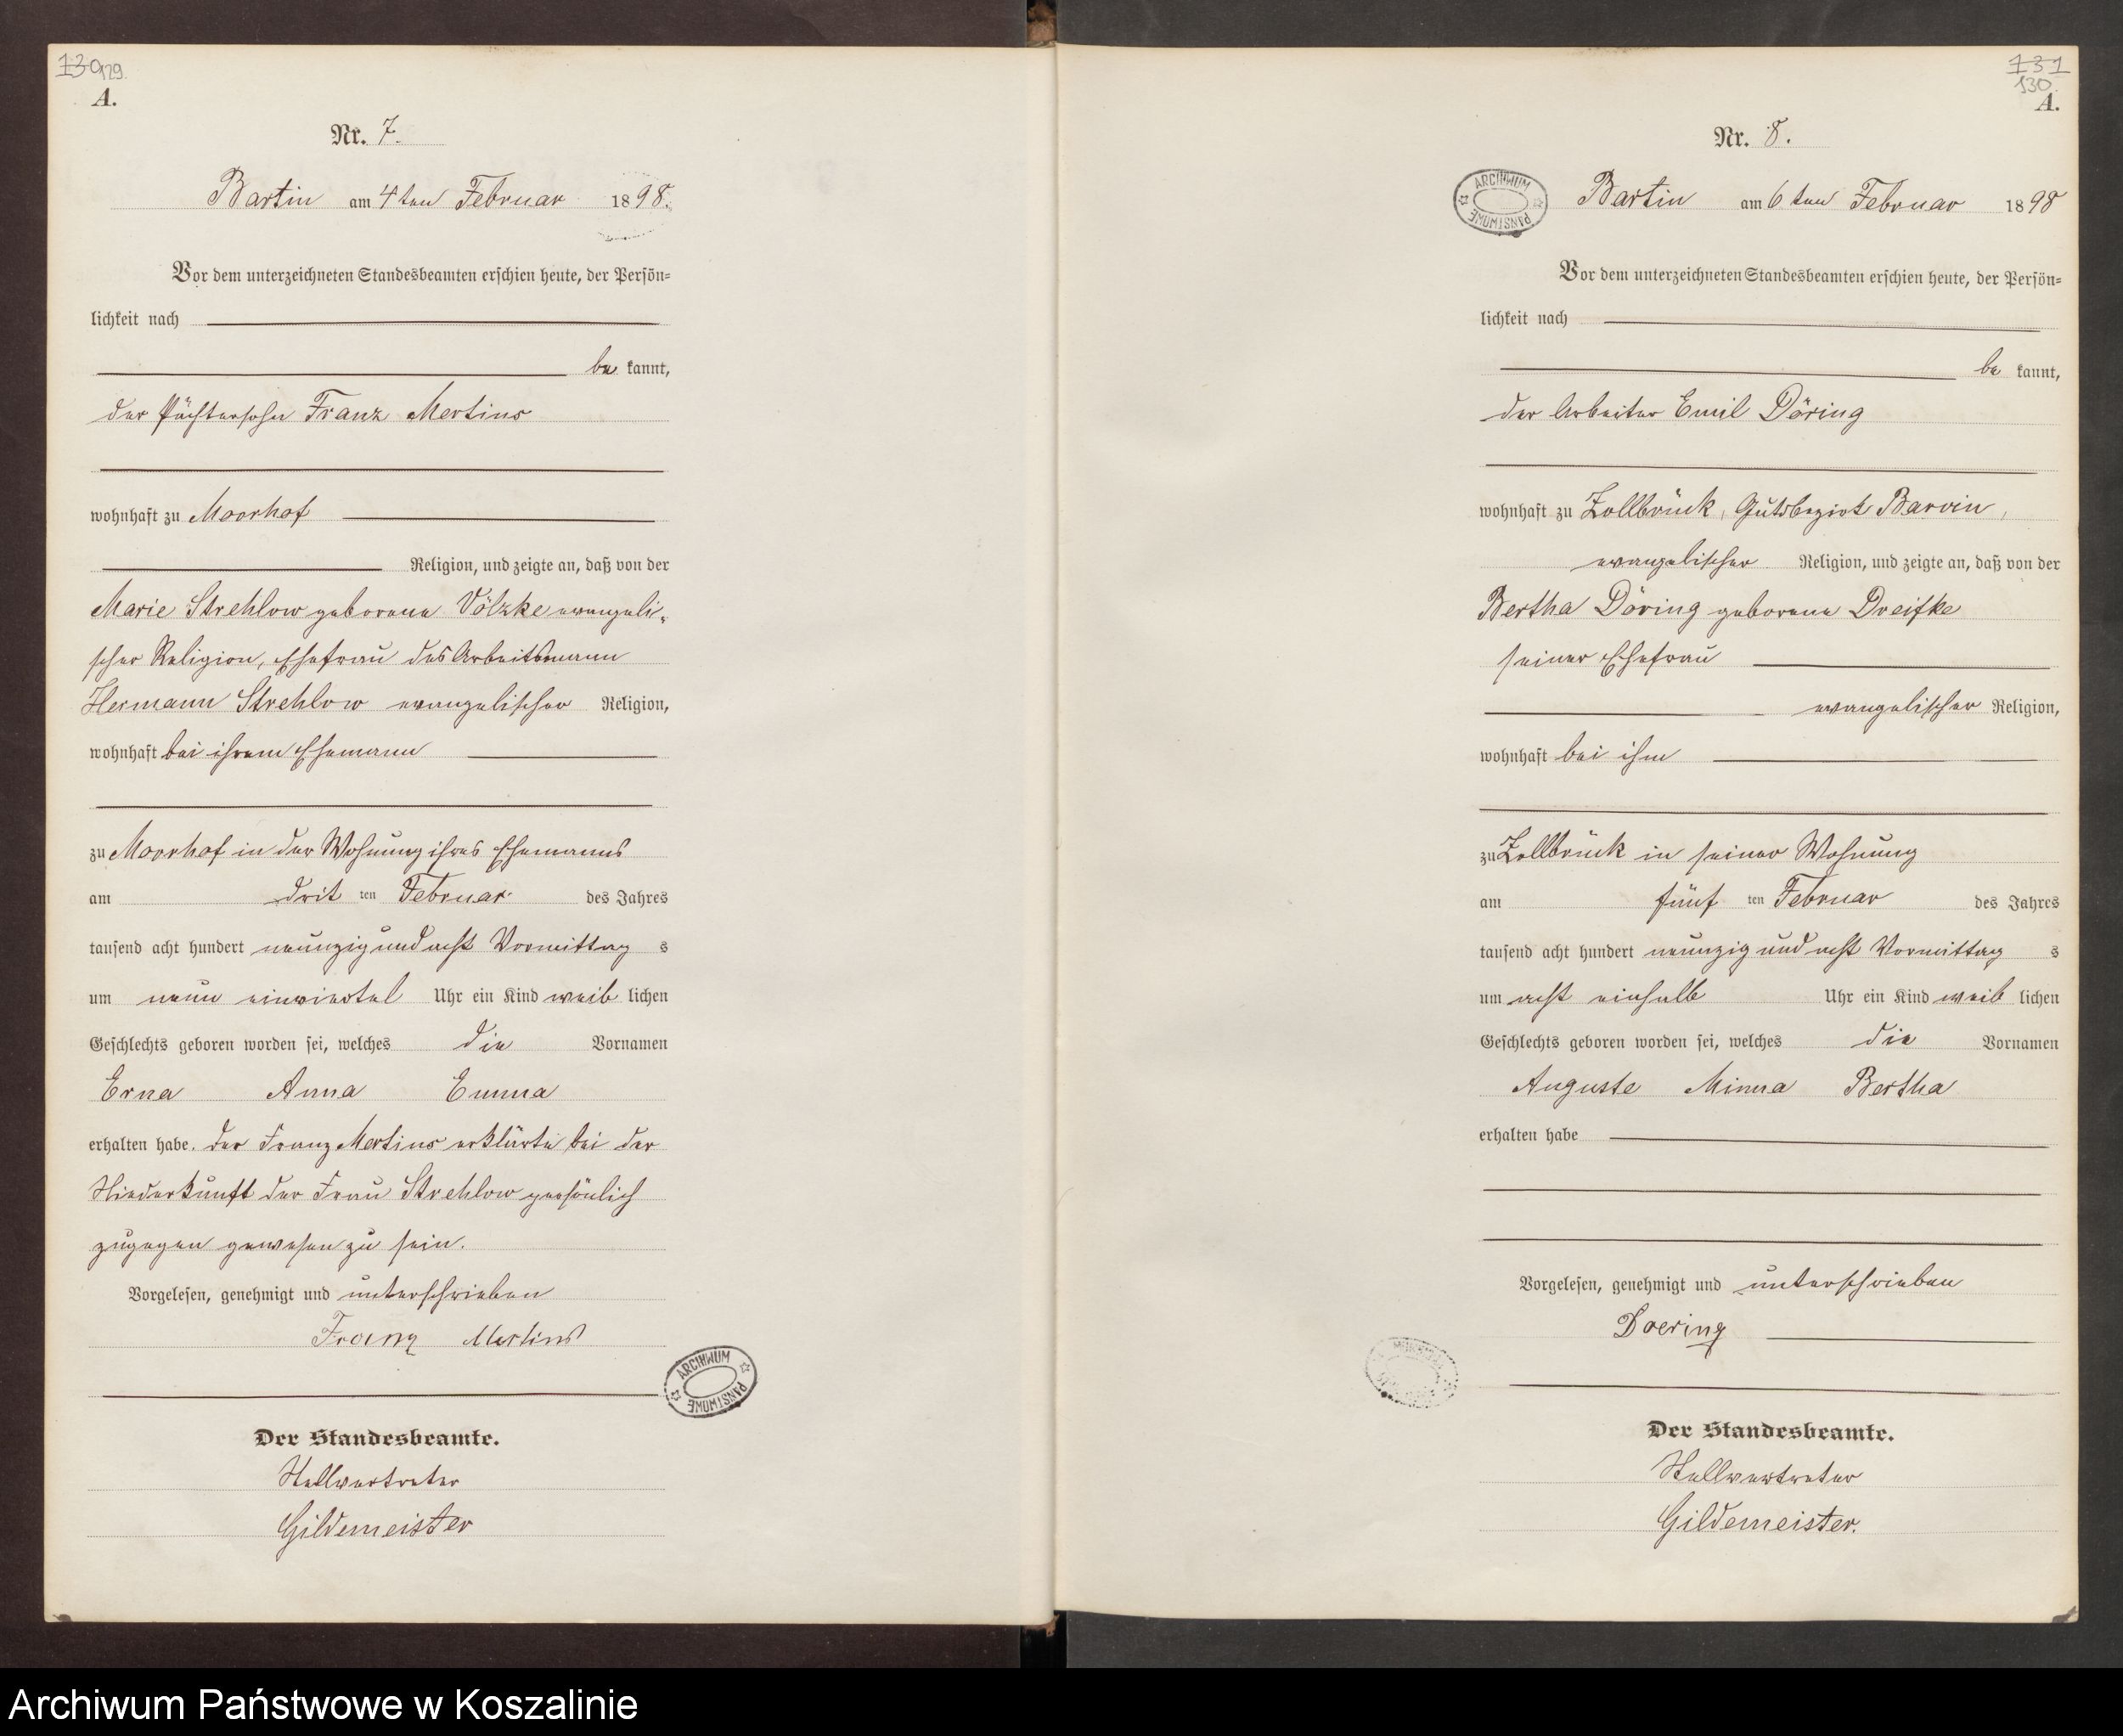 130 129.
A.
Nr. 7.
Bartin am 4ten Februar 1898.
Vor dem unterzeichneten Standesbeamten erschien heute, der Persön=
lichkeit nach
be kannt,
der Pächtersohn Franz Mertins
wohnhaft zu Moorhof
Religion, und zeigte an, daß von der
Marie Strehlow geborene Völzke evangeli-
scher Religion, Ehefrau des Arbeitsmann
Hermann Strehlow evangelischer Religion,
wohnhaft bei ihrem Ehemann
zu Moorhof in der Wohnung ihres Ehemanns
am drit ten Februar des Jahres
tausend acht hundert neunzig und acht Vormittag s
um neun einviertel Uhr ein Kind weib lichen
Geschlechts geboren worden sei, welches die Vornamen
Erna Anna Emma
erhalten habe. Der Franz Mertins erklärte bei der
Niederkunft der Frau Strehlow persönlich
zugegen gewesen zu sein.
Vorgelesen, genehmigt und unterschrieben
Franz Mertins
ARCHIWUM PAŃSTWOWE
Der Standesbeamte.
Stellvertreter
Gildemeister
131
130.
A.
Nr. 8.
ARCHIWUM PAŃSTWOWE
Bartin am 6ten Februar 1898
Vor dem unterzeichneten Standesbeamten erschien heute, der Persön=
lichkeit nach
be kannt,
der Arbeiter Emil Döring
wohnhaft zu Zollbrück, Gutsbezirk Barvin,
evangelischer Religion, und zeigte an, daß von der
Bertha Döring geborene Dreifke
seiner Ehefrau
evangelischer Religion,
wohnhaft bei ihm
zu Zollbrück in seiner Wohnung
am fünf ten Februar des Jahres
tausend acht hundert neunzig und acht Vormittag s
um acht einhalb Uhr ein Kind weib lichen
Geschlechts geboren worden sei, welches die Vornamen
Auguste Minna Bertha
erhalten habe
Vorgelesen, genehmigt und unterschrieben
Doering
Der Standesbeamte.
Stellvertreter
Gildemeister.
Archiwum Państwowe w Koszalinie